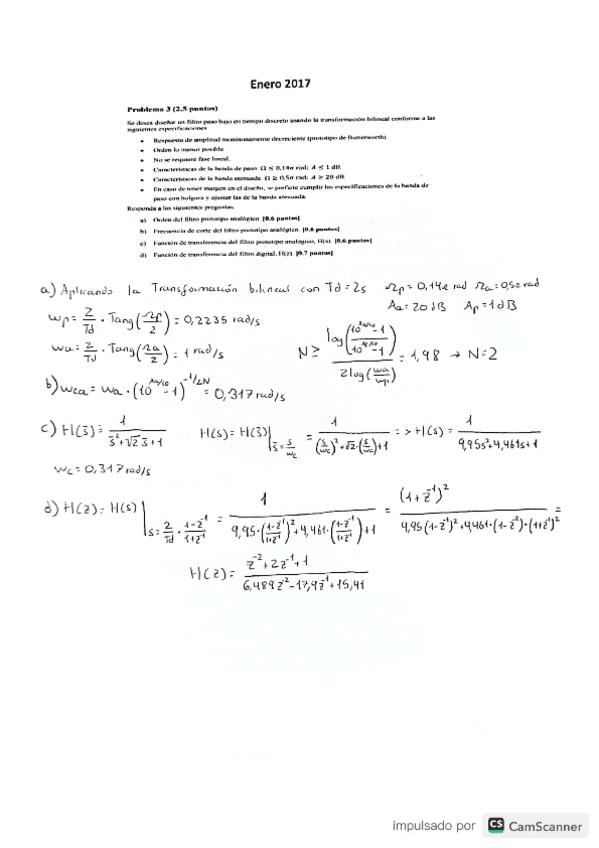 Enero 2017
Problema 3 (2.5 puntos)
Se desea diseñar un filtro paso bajo en tiempo discreto usando la transformación bilineal conforme a las
siguientes especificaciones
• Respuesta de amplitud monótonamente decreciente (prototipo de Butterworth).
• Orden lo menor posible.
• No se requiere fase lineal.
• Características de la banda de paso: Ω ≤ 0,14π rad; A ≤ 1 dB.
• Características de la banda atenuada: Ω ≥ 0,5π rad; A ≥ 20 dB.
• En caso de tener margen en el diseño, se prefiere cumplir las especificaciones de la banda de
paso con holgura y ajustar las de la banda atenuada.
Responda a las siguientes preguntas.
a) Orden del filtro prototipo analógico. [0.6 puntos]
b) Frecuencia de corte del filtro prototipo analógico. [0.6 puntos]
c) Función de transferencia del filtro prototipo analógico, H(s). [0.6 puntos]
d) Función de transferencia del filtro digital, H(z). [0.7 puntos]
a) Aplicando la Transformación bilineal con Td=2s Ωp=0,14π rad Ωa=0,5π rad
Aa=20 dB Ap=1 dB
wp= 2/Td · Tang(Ωp/2) = 0,2235 rad/s
wa= 2/Td · Tang(Ωa/2) = 1 rad/s N ≥ log((10^(Aa/10)-1)/(10^(Ap/10)-1)) / 2log(wa/wp) = 1,98 → N=2
b) wca = wa · (10^(Aa/10) -1)^(-1/2N) = 0,317 rad/s
c) H(s̄) = 1/(s̄²+√2 s̄+1) H(s) = H(s̄)|s̄=s/wc = 1/((s/wc)²+√2·(s/wc)+1) => H(s) = 1/(9,95s²+4,461s+1)
wc = 0,317 rad/s
d) H(z) = H(s)|s=2/Td · (1-z⁻¹)/(1+z⁻¹) = 1/(9,95·((1-z⁻¹)/(1+z⁻¹))²+4,461·((1-z⁻¹)/(1+z⁻¹))+1) = (1+z⁻¹)²/(9,95(1-z⁻¹)²+4,461·(1-z⁻²)+(1+z⁻¹)²) =
H(z) = (z⁻²+2z⁻¹+1)/(6,489z⁻²-17,9z⁻¹+15,41)
impulsado por CS CamScanner